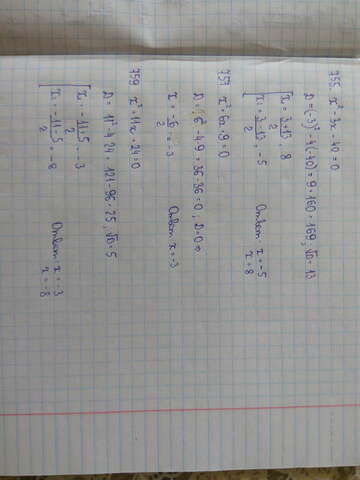 755. x²-3x-40=0
D=(-3)²-4(-40)=9+160=169; √D=13
[x₁=3+13/2=8
[x₁=3-13/2=-5 Ответ: x=-5
x=8
757. x²+6x+9=0
D=6²-4·9=36-36=0; D=0 ⇒
x=-6/2=-3 Ответ: x=-3
759. x²+11x+24=0
D=11²-4·24=121-96=25; √D=5
[x₁=-11+5/2=-3
[x₁=-11-5/2=-8 Ответ: x=-3
x=-8